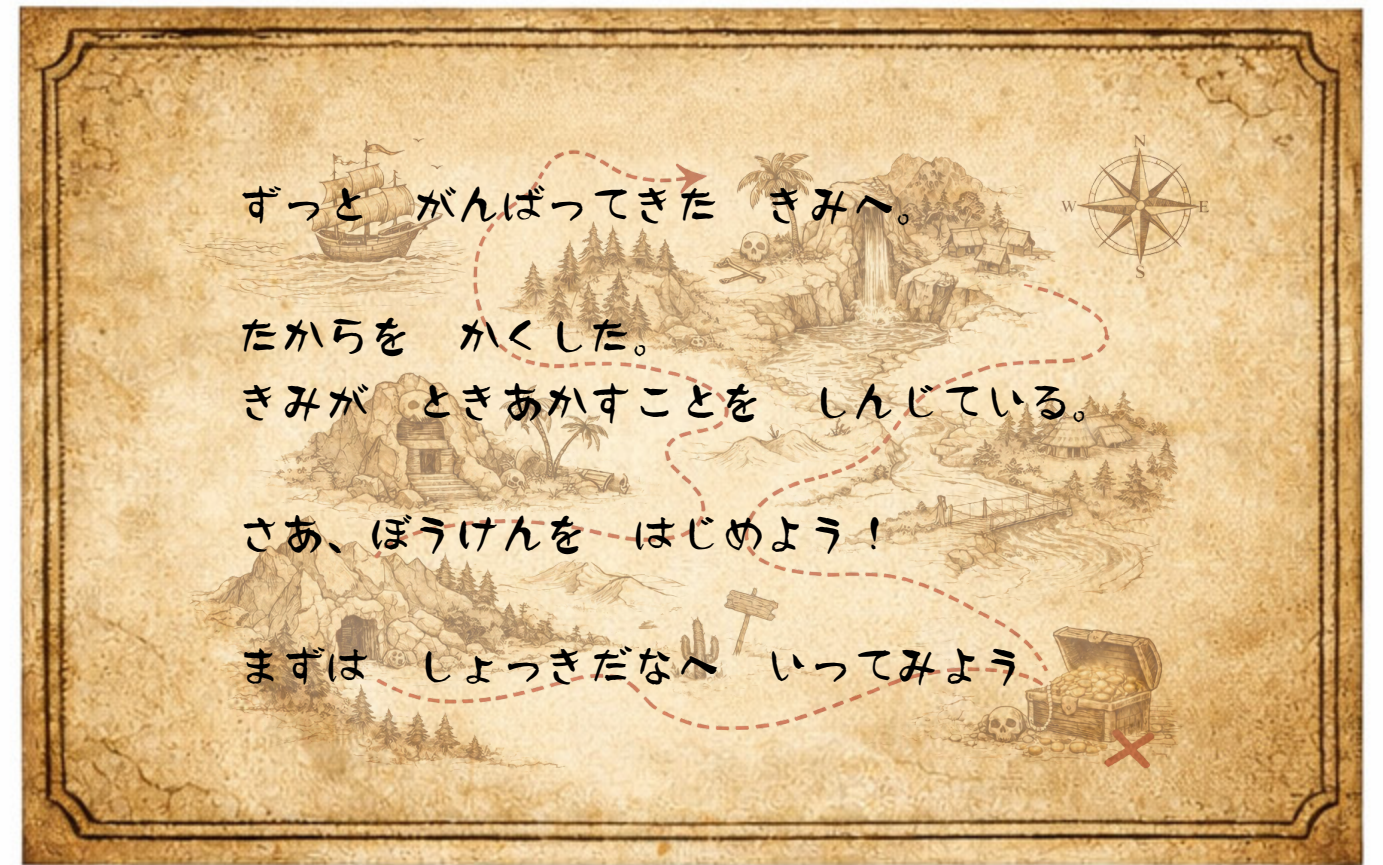 ずっと　がんばってきた　きみへ。
たからを　かくした。
きみが　ときあかすことを　しんじている。
さあ、ぼうけんを　はじめよう！
まずは　しょっきだなへ　いってみよう
N
W
E
S